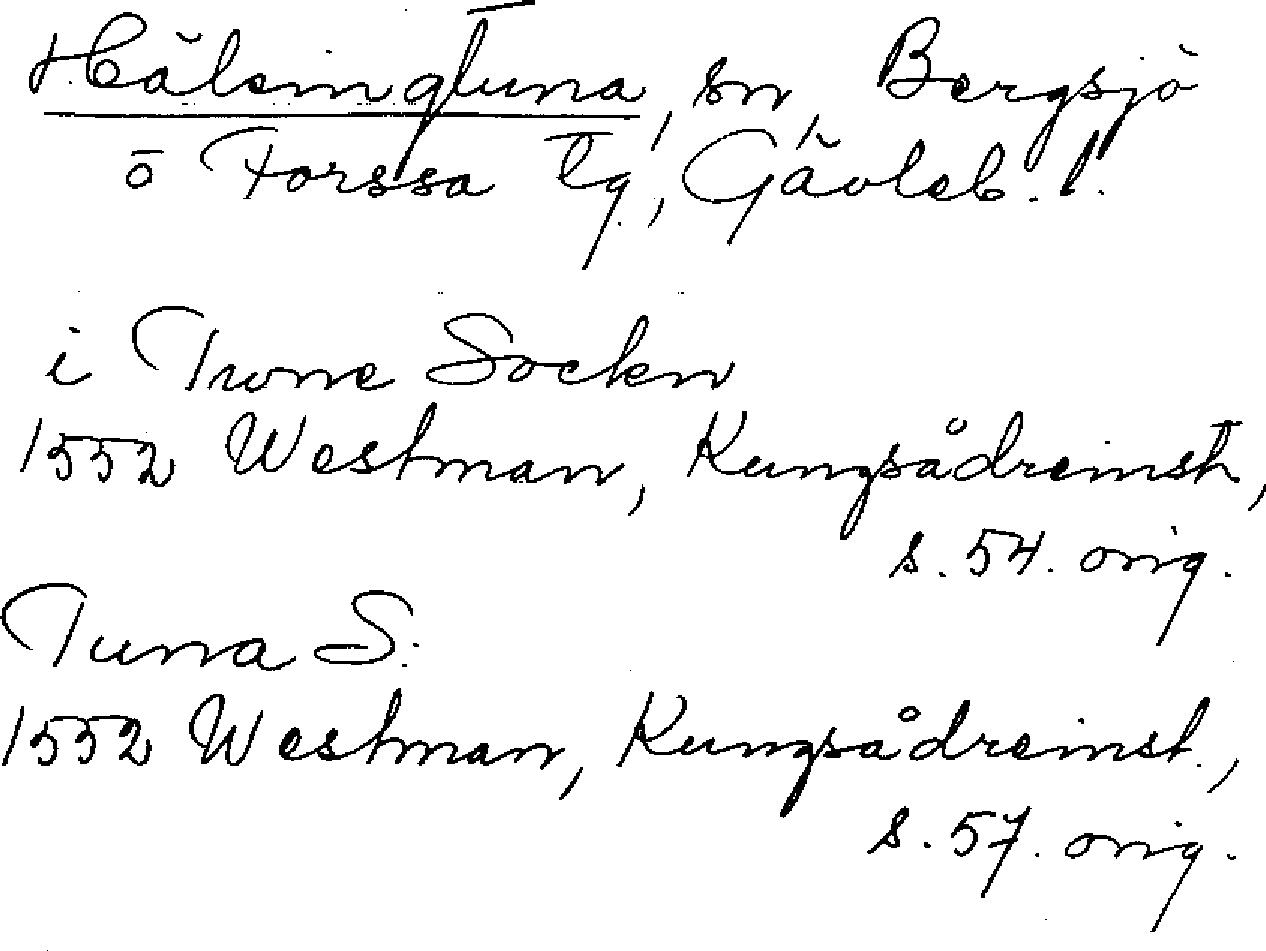 Hälsingtuna, sn, Bergsjö
o Forssa tg., Gävleb. l.
i Twne Sockn
1552 Westman, Kungsådreinst,
s. 54. orig.
Tuna S.
1552 Westman, Kungsådreinst.,
s. 57. orig.